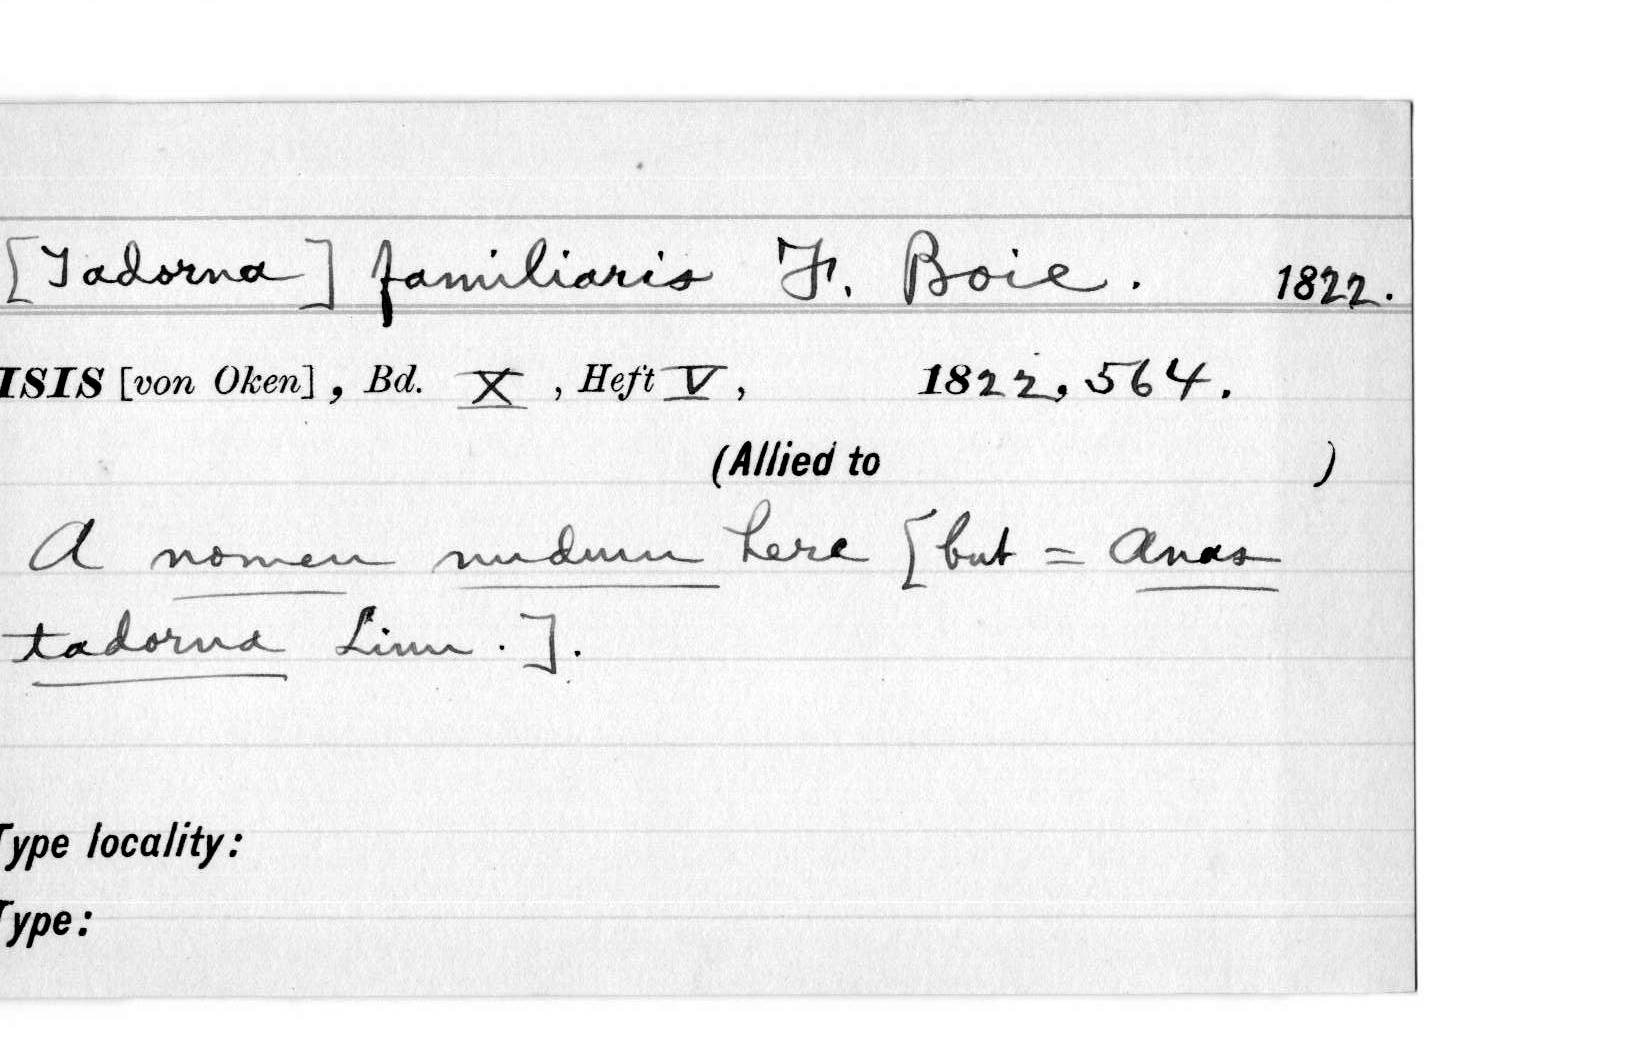 [Tadorna] familiaris F. Boie. 1822.
ISIS [von Oken], Bd. X, Heft V, 1822, 564.
(Allied to )
A nomen nudum here [but = Anas
tadorna Linn.].
Type locality:
Type: